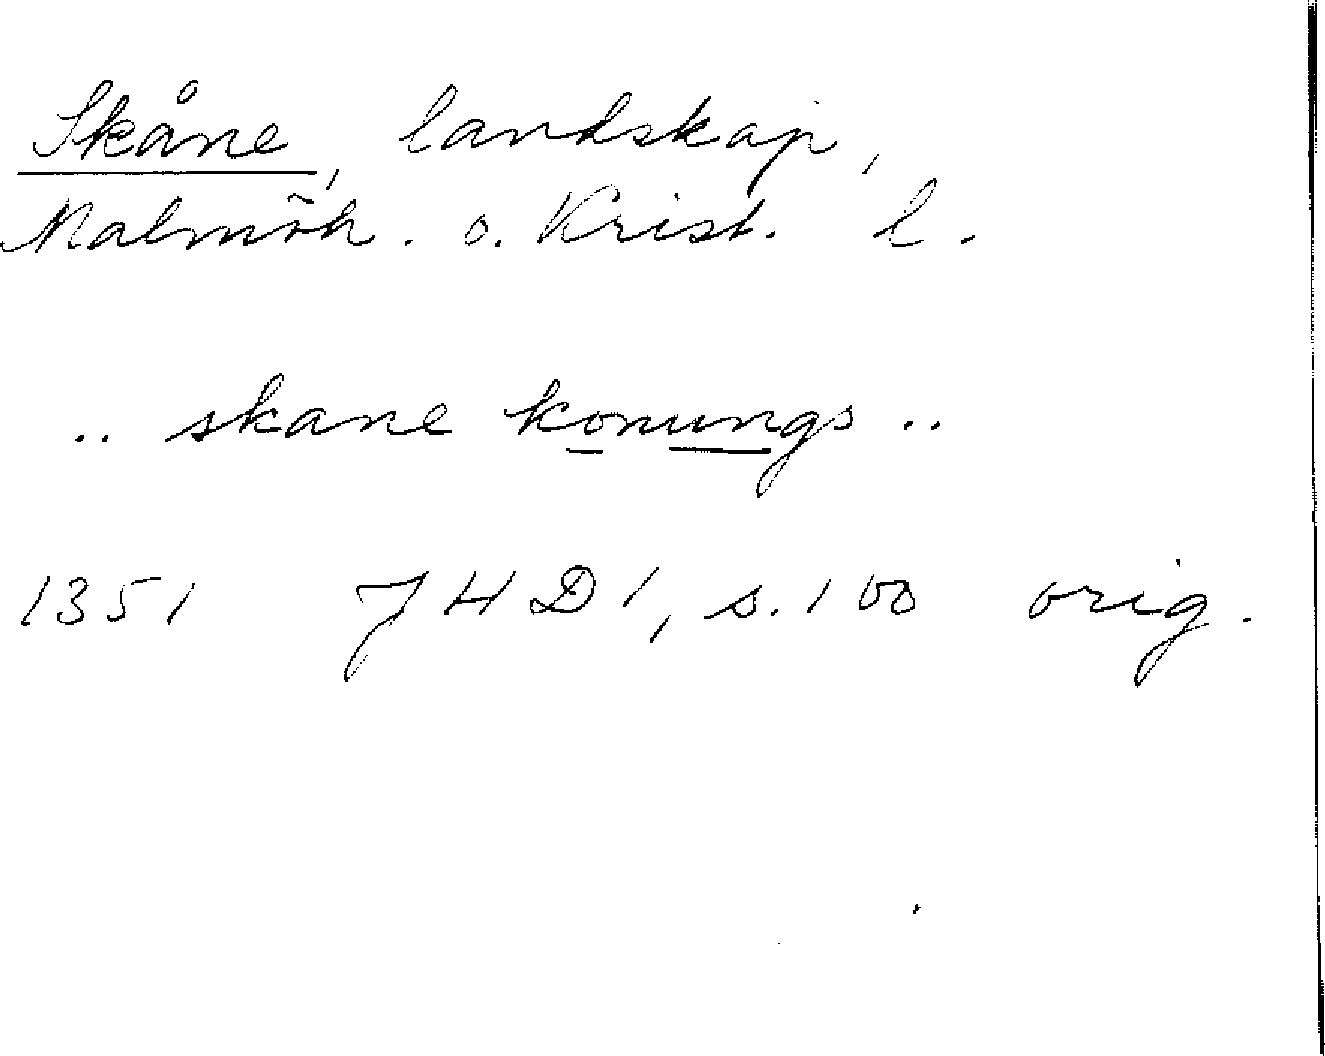 Skåne, landskap,
Malmöh. o. Krist. l.
.. skane konungs ..
1351 JHD 1, s. 100 orig.